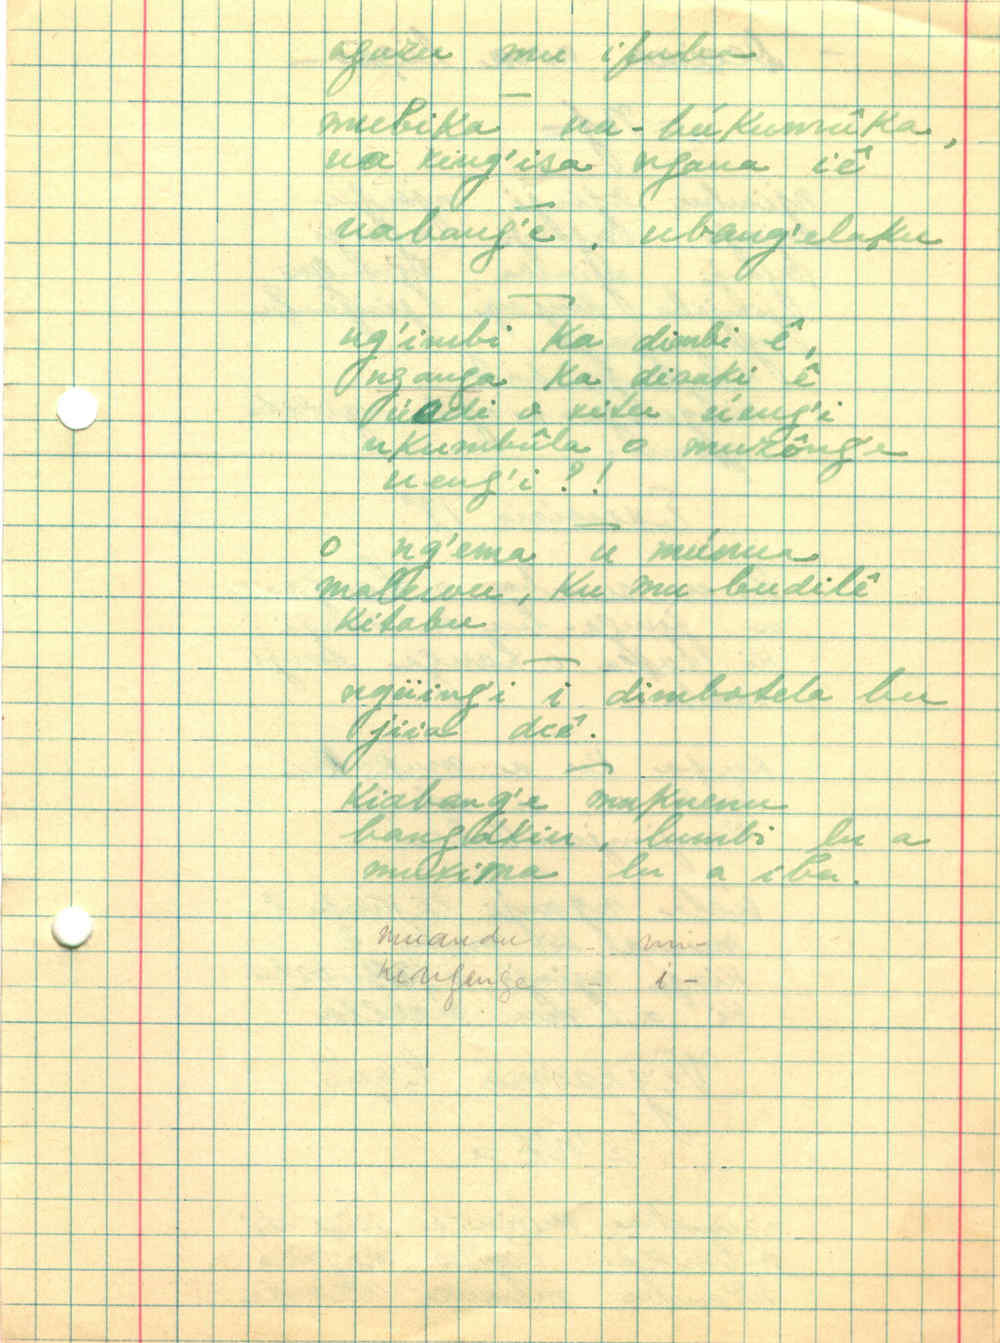 nguzu mu ifuba
mubika na-búkumúka,
na xing'isa ngana iê
uabang'e, ubang'elaku
ng'imbi ka dimbi ê,
nganga ka disaki ê
uadi o xitu úeng'i
ukumbûla o muzông'e
ueng'i?!
o ng'ema u múnua
maluvu, ku mu budilê
kitabu
ngüing'i i dimbotela bu
jiia diê.
Kiabang'e mukuenu
bang'akiu, lumbi lu a
muxima lu a iba.
muandu - mi-
kinjeng'e - i-